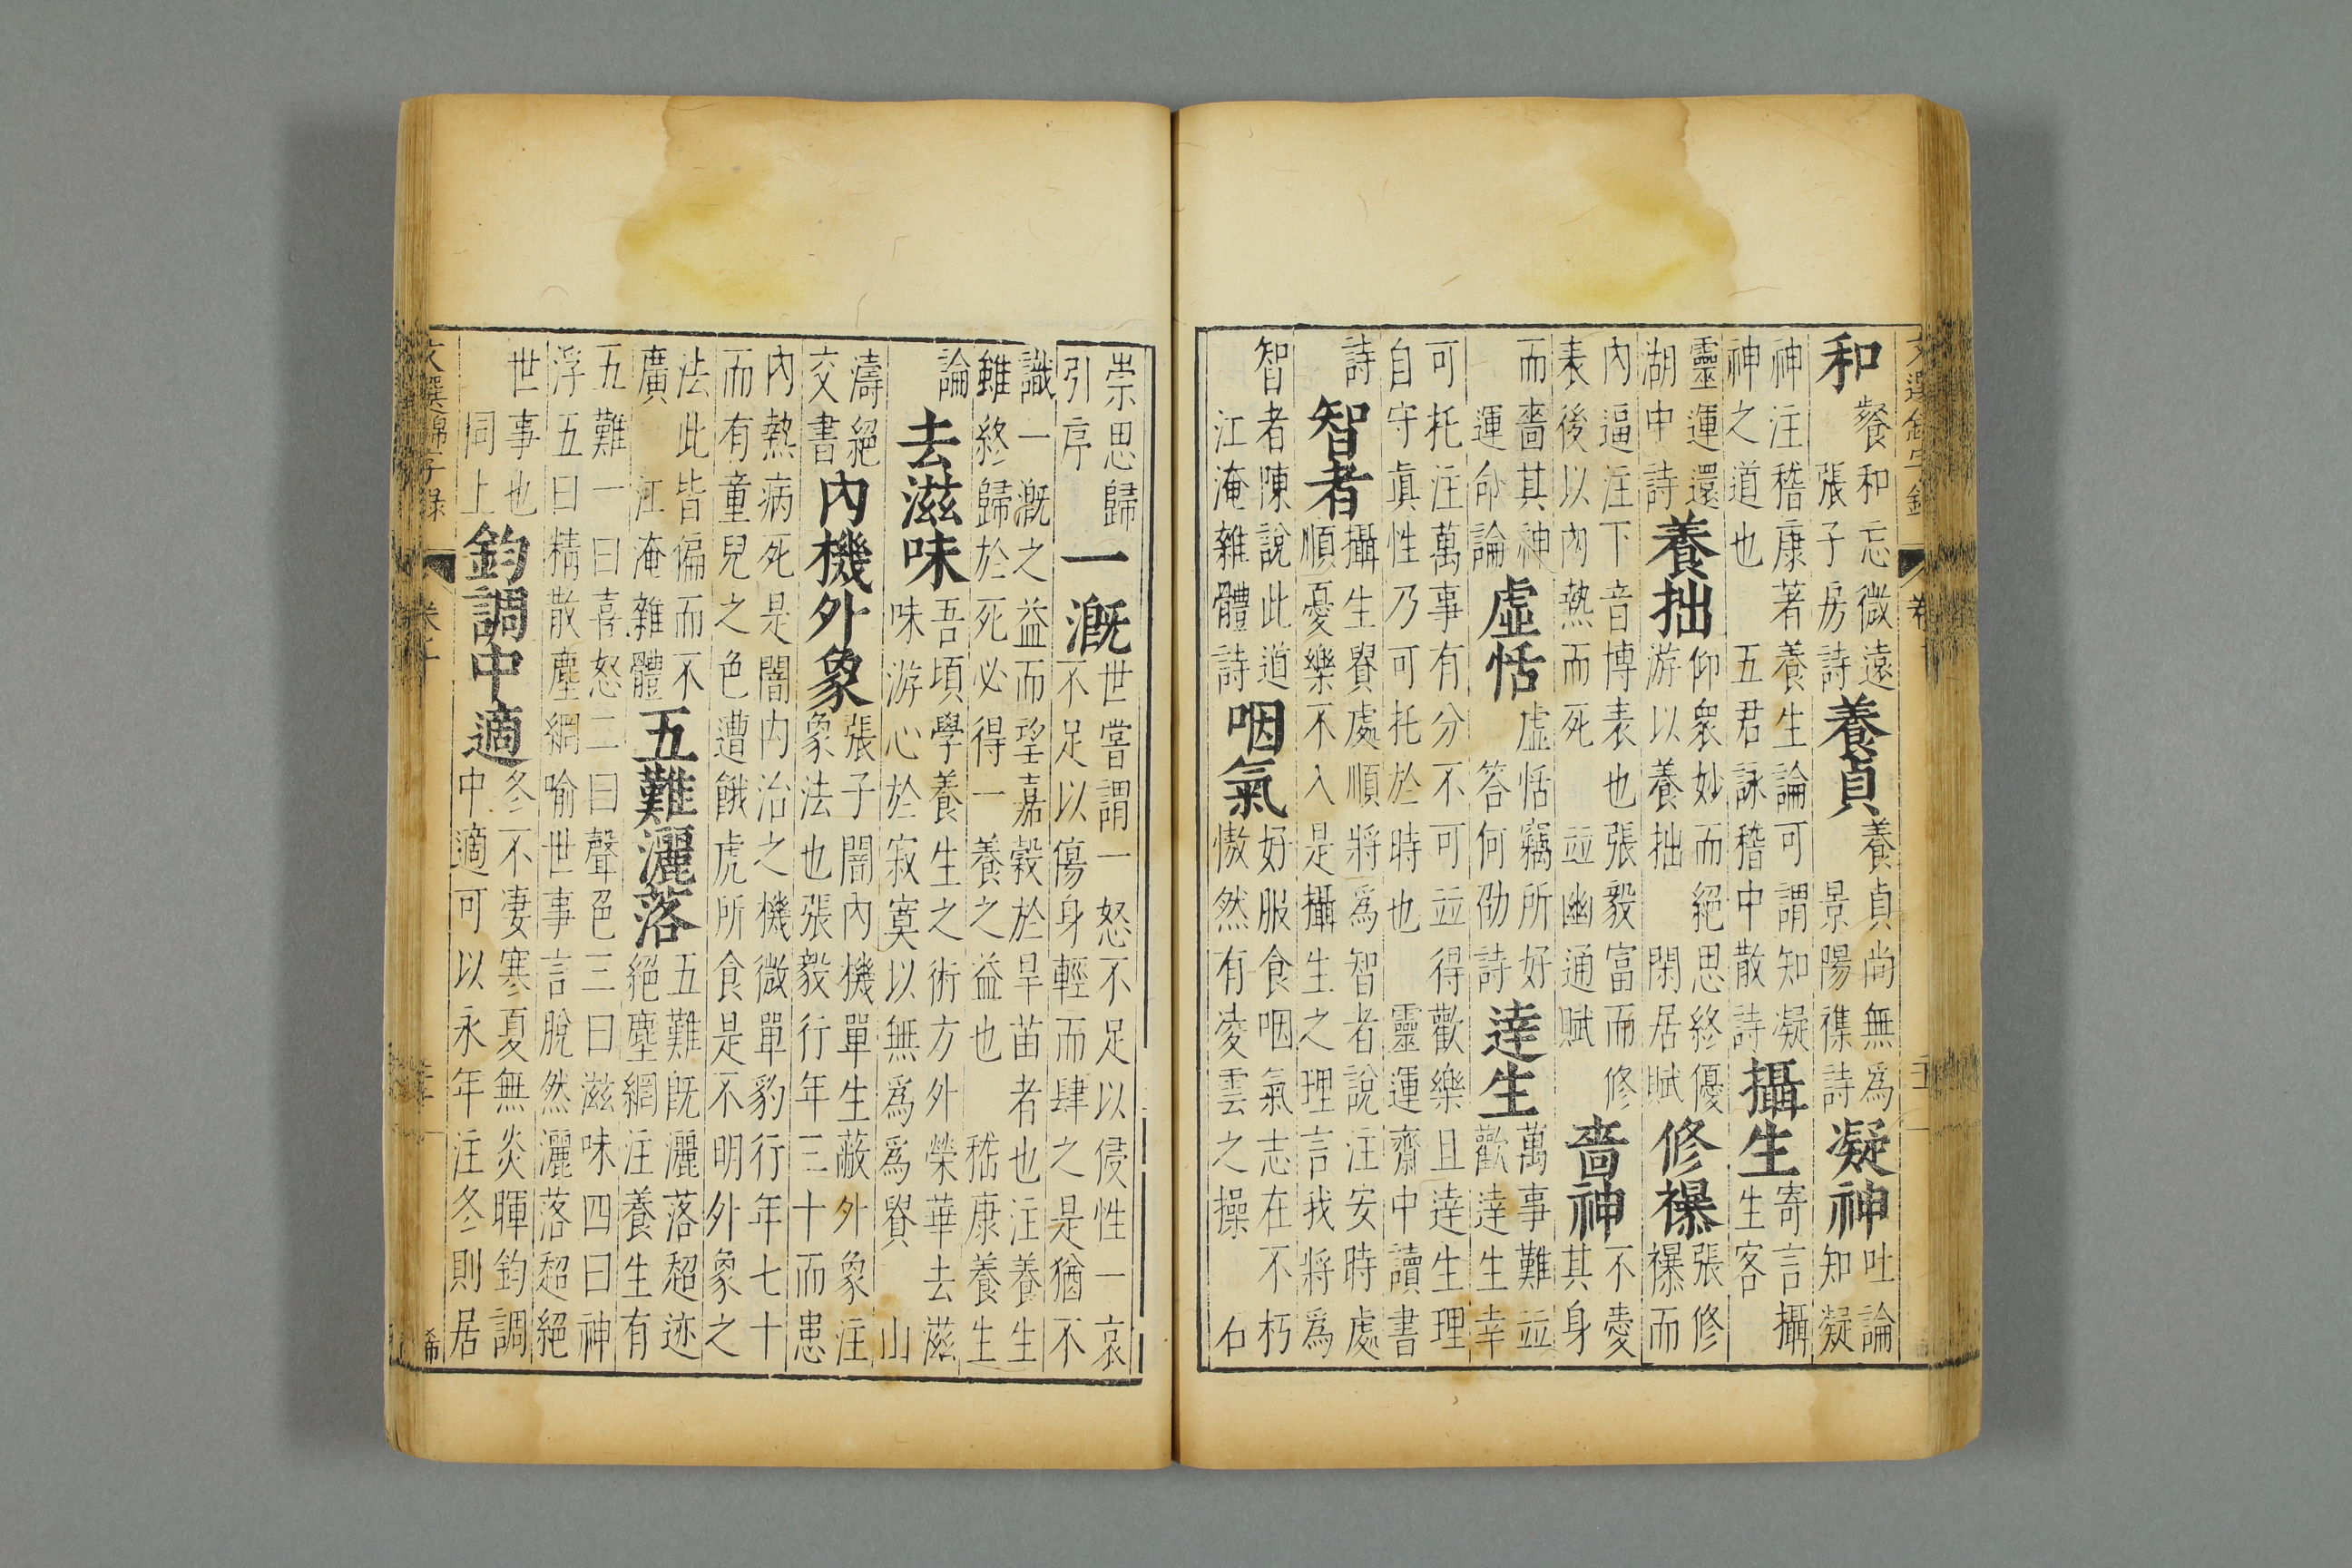 和餐和忘微遠張子房詩養貞養貞尚無爲景陽襍詩凝神吐論知凝
神注嵇康著養生論可謂知凝神之道也 五君詠嵇中散詩攝生寄言攝生客
靈運還湖中詩養拙仰衆妙而絕思終優游以養拙 閑居賦修襮張修襮而
內逼注下音博表也張毅富而修表後以內熱而死 並幽通賦嗇神不愛其身
而嗇其神運命論虛恬虛恬竊所好答何劭詩達生萬事難並歡達生幸
可托注萬事有分不可並得歡樂且達生理自守眞性乃可托於時也 靈運齋中讀書
詩智者攝生賢處順將爲智者說注安時處順憂樂不入是攝生之理言我將爲
智者陳說此道江淹雜體詩咽氣好服食咽氣志在不朽慠然有凌雲之操 石
崇思歸引序一溉世嘗謂一怒不足以侵性一哀不足以傷身輕而肆之是猶不
識一溉之益而望嘉穀於旱苗者也注養生雖終歸於死必得一養之益也 嵇康養生
論去滋味吾頃學養生之術方外榮華去滋味游心於寂寞以無爲爲貴 山
濤絕交書內機外象張子闇內機單生蔽外象注象法也張毅行年三十而患
內熱病死是闇內治之機微單豹行年七十而有童兒之色遭餓虎所食是不明外象之
法此皆偏而不廣 江淹雜體五難灑落五難旣灑落超迹絕塵網注養生有
五難一曰喜怒二曰聲色三曰滋味四曰神浮五曰精散塵網喻世事言脫然灑落超絕
世事也同上鈞調中適冬不凄寒夏無炎暉鈞調中適可以永年注冬則居
文選錦字錄 卷十